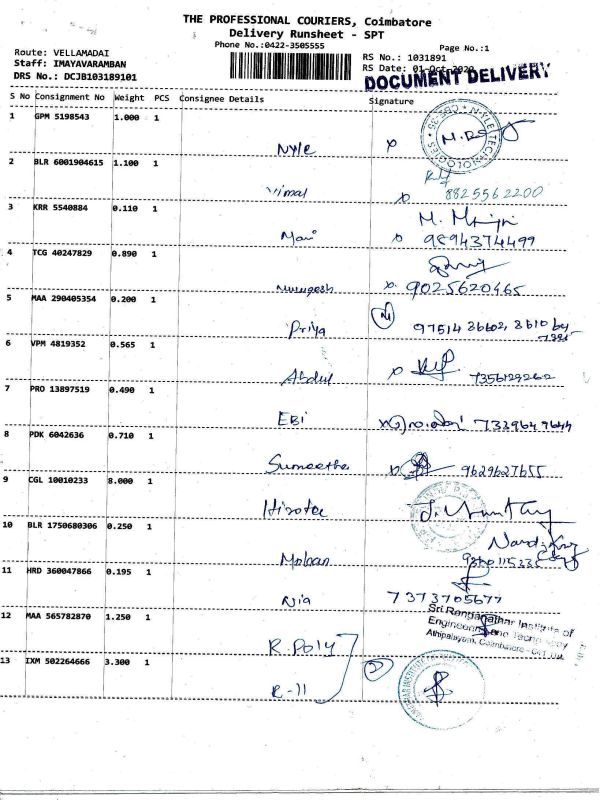 THE PROFESSIONAL COURIERS, Coimbatore
Delivery Runsheet - SPT
Phone No.:0422-3505555
Page No.:1
Route: VELLAMADAI
RS No.: 1031891
Staff: IMAYAVARAMBAN
RS Date: 01-Oct-2020
DRS No.: DCJB103189101
DOCUMENT DELIVERY
S No Consignment No Weight PCS Consignee Details Signature
1 GPM 5198543 1.000 1
Nyle
2 BLR 6001904615 1.100 1
Vimal 8825562200
3 KRR 5540884 0.110 1
Mani 9894374499
4 TCG 40247829 0.890 1
Murugesh 9025620465
5 MAA 290405354 0.200 1
Priya
6 VPM 4819352 0.565 1
Abdul 7356129262
7 PRO 13897519 0.490 1
EBI
8 PDK 6042636 0.710 1
Sumeetha 9629627655
9 CGL 10010233 8.000 1
10 BLR 1750680306 0.250 1
Mohan
11 HRD 360047866 0.195 1
Nia 7373705677
12 MAA 565782870 1.250 1
Sri Ranganathar Institute of
Engineering and Technology
Athipalayam, Coimbatore
R. Poly
13 IXM 502264666 3.300 1
R-11